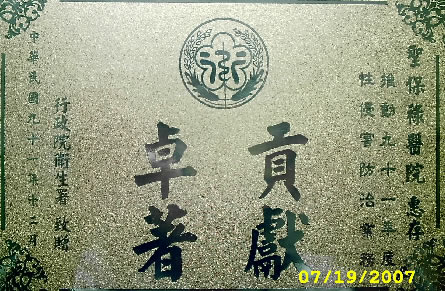 聖保祿醫院 惠存
推動九十一年度
性侵害防治業務
貢獻
卓著
行政院衛生署 致贈
中華民國九十一年十二月
07/19/2007